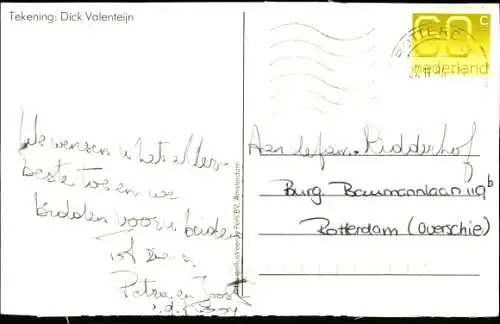 Tekening: Dick Valenteijn
60 c
nederland
We wensen u het aller-
beste toe en we
bidden voor u beiden
Tot Ziens.
Petra en Joost
Aan de fam. Ridderhof
Burg. Baumannlaan 119b
Rotterdam (Overschie)